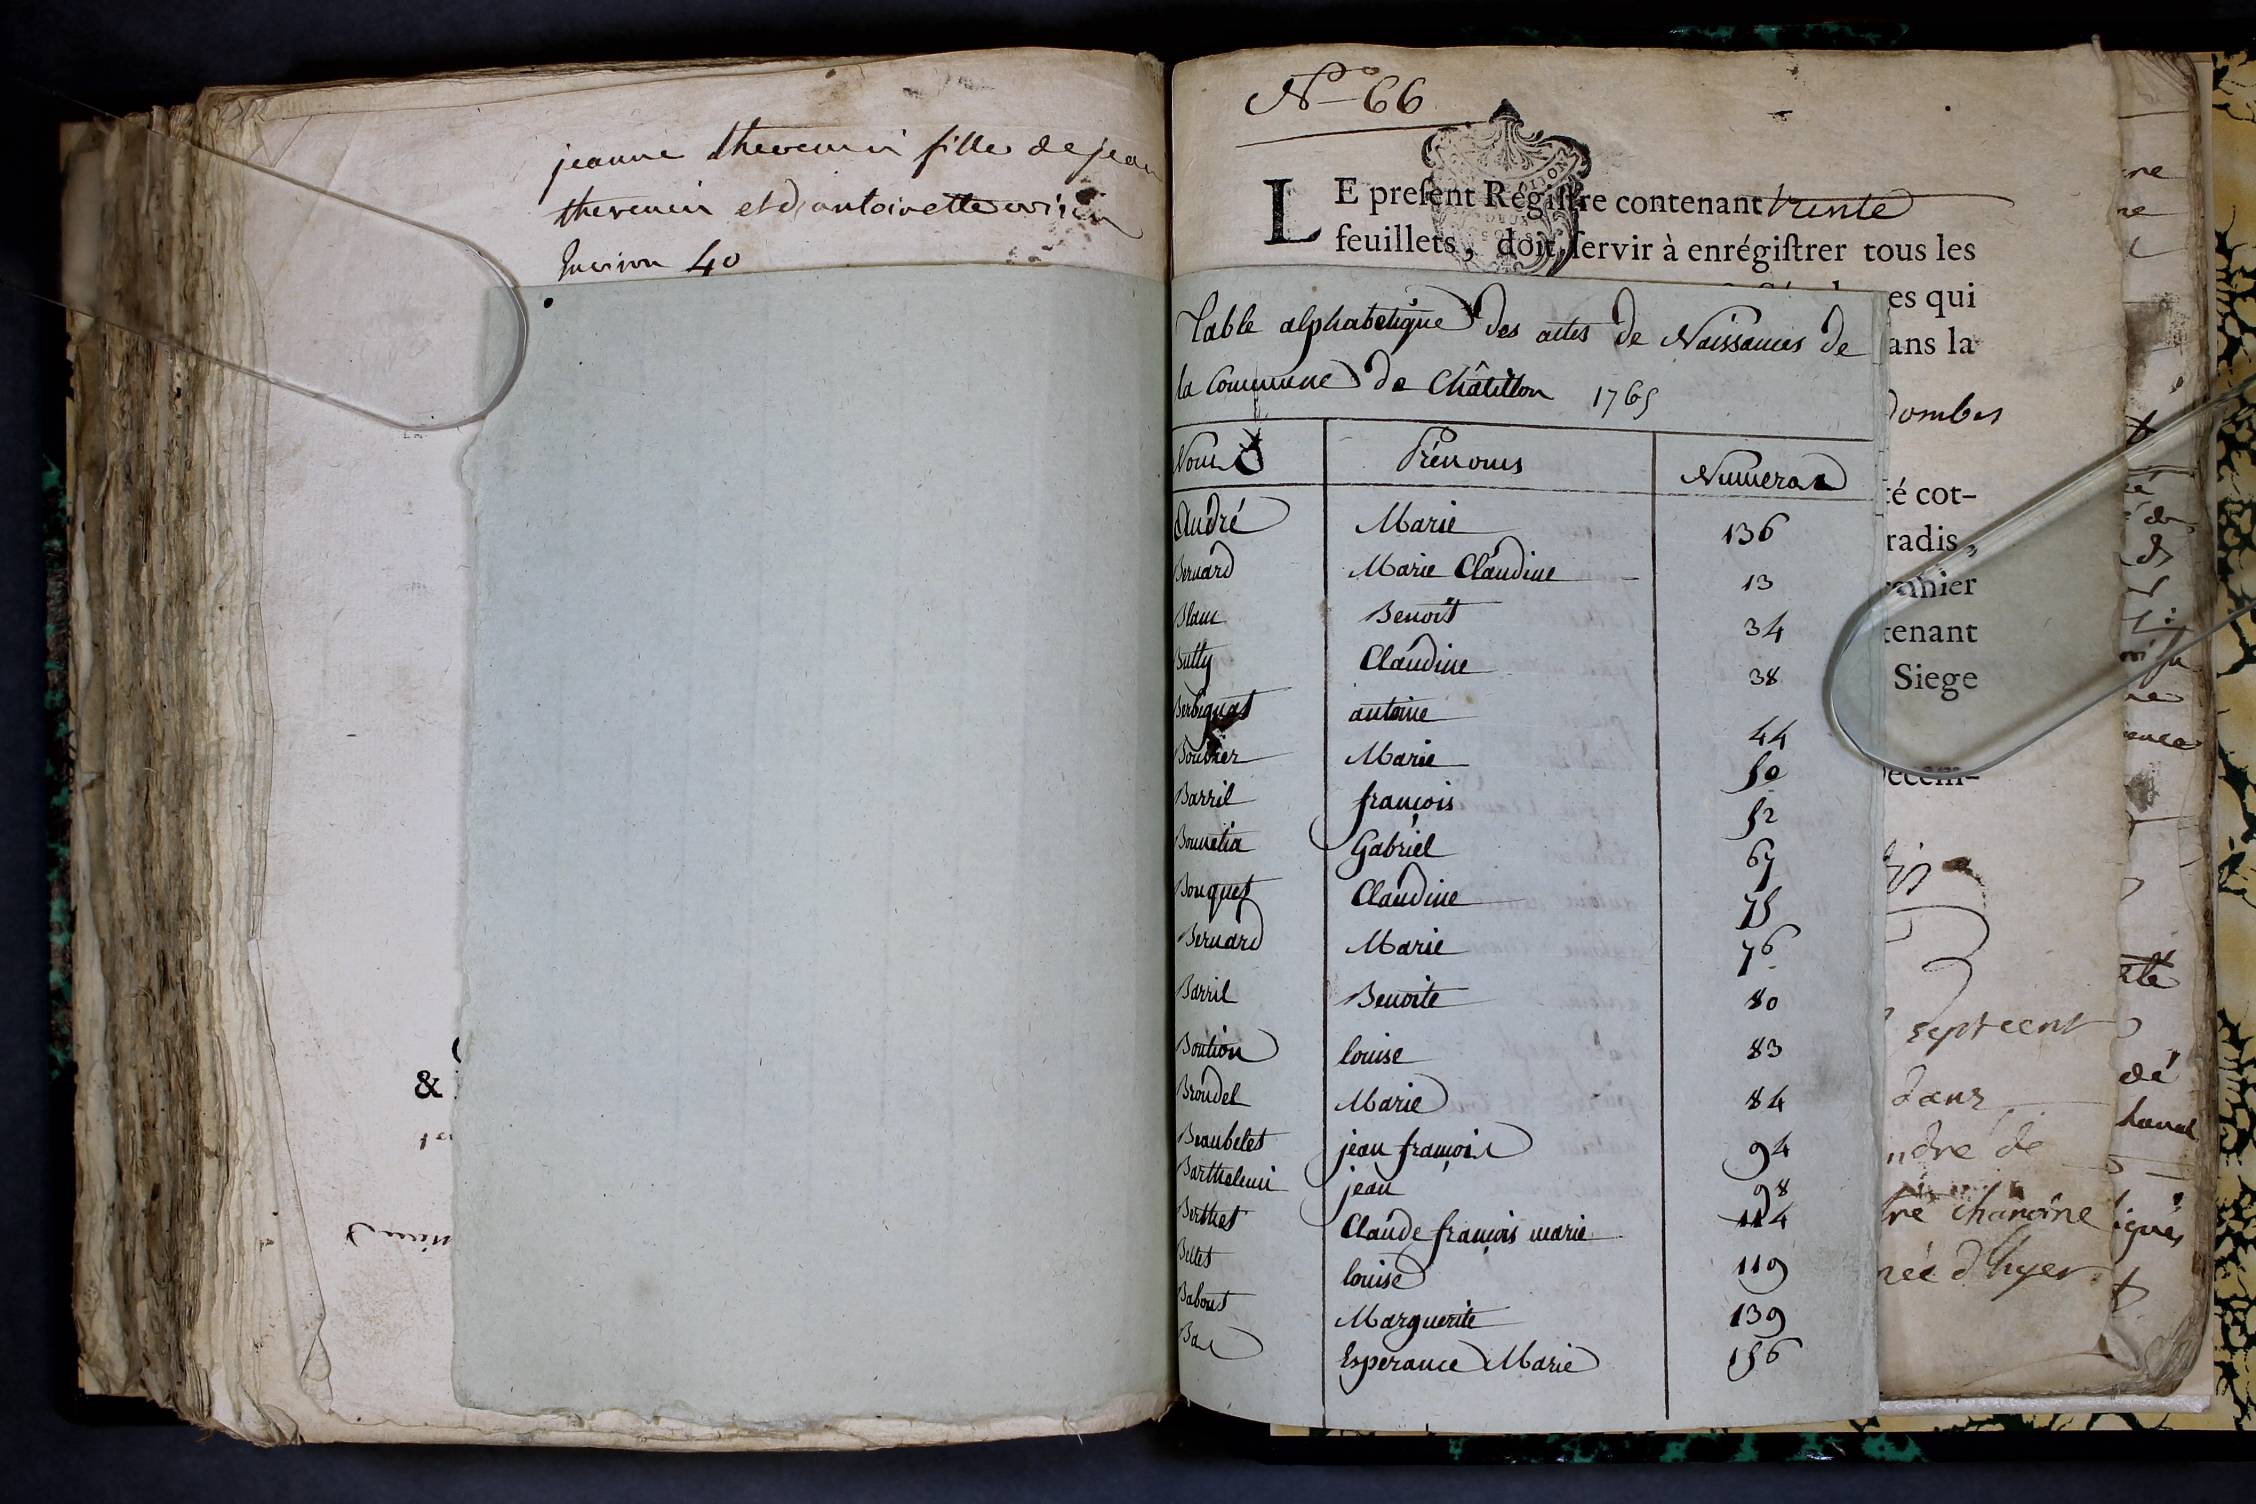 jeanne thevenin fille de jean
thevenin et d'antoinette
40
N° 66
LE present Régistre contenant trente
feuillets, doit servir à enrégistrer tous les
es qui
ans la
Table alphabetique des actes de Naissances de
la Commune de Châtillon 1765
dombes
Noms Prénoms Numeros
té cot-
André Marie 136
radis,
Bernard Marie Claudine 13
Blanc Benoît 34
tenant
Butty Claudine 38
Siege
Berbiguat antoine 44
Bouvier Marie 50
Barril françois 52
Gabriel 67
Bouquet Claudine 75
Bernard Marie 76
Barril Benoite 80
Boulion louise 83
septcent
Broudel Marie 84
dans
Beaubelet jean françois 94
ndre de
Barthelemi jean 98
Berthet Claude françois marie 114
tre chanoine
Bellet louise 119
née d'hyer
Babout Marguerite 139
Bal Esperance Marie 156